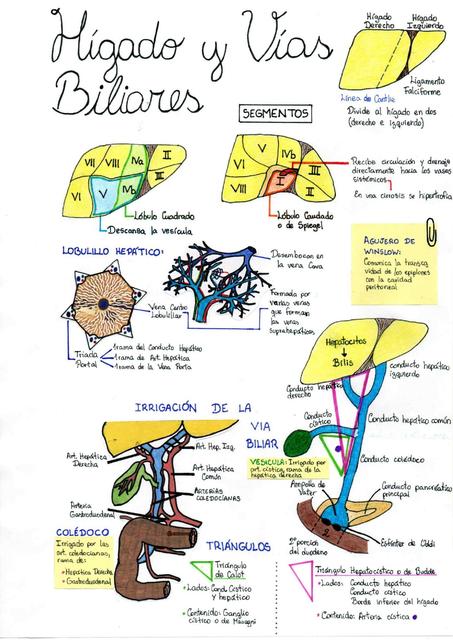 Hígado y Vías
Biliares
Hígado
Derecho
Hígado
Izquierdo
Ligamento
Falciforme
Línea de Cantlie
Divide al hígado en dos
(derecho e izquierdo)
SEGMENTOS
VII
VIII
IVa
II
VI
V
IVb
III
Lóbulo Cuadrado
Descansa la vesícula
V
VI
IVb
III
VIII
I
II
Recibe circulación y drenaje
directamente hacia los vasos
sistémicos
En una cirrosis se hipertrofia
Lóbulo Caudado
o de Spiegel
AGUJERO DE
WINSLOW:
Comunica la transca
vidad de los epiplones
con la cavidad
peritoneal
LOBULILLO HEPÁTICO:
Vena Centro
Lobulillar
Triada
Portal
1 rama del Conducto Hepático
1 rama de Art. Hepática
1 rama de la Vena Porta
Desembocan en
la vena Cava
Formada por
varias venas
que forman
las venas
suprahepáticas
Hepatocitos
Bilis
conducto hepático
izquierdo
Conducto hepático
derecho
Conducto
cístico
Conducto hepático común
Conducto colédoco
VESICULA: Irrigado por
art. cística, rama de la
hepática derecha
Ampolla de
Vater
Conducto pancreático
principal
2ª porción
del duodeno
2
Esfínter de Oddi
IRRIGACIÓN DE LA VIA
BILIAR
Art. Hepática
Derecha
Art. Hep. Izq.
Art. Hepática
Común
ARTERIAS
COLEDOCIANAS
Arteria
Gastroduodenal
COLÉDOCO
Irrigado por las
art. coledocianas,
rama de:
Hepática Derecha
Gastroduodenal
TRIÁNGULOS
Triángulo
de Calot
Lados: Cond. Cístico
y hepático
Contenido: Ganglio
cístico o de Mascagni
Triángulo Hepatocístico o de Budde
Lados: Conducto hepático
Conducto cístico
Borde inferior del hígado
Contenido: Arteria cística